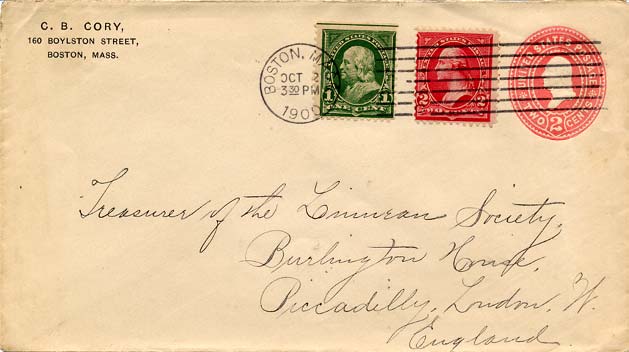 C. B. CORY,
160 BOYLSTON STREET,
BOSTON, MASS.
BOSTON, M
OCT 2
3 30 PM
190
1 ONE CENT 1
2 2
UNITED STATES
TWO 2 CENTS
Treasurer of the Linnean Society,
Burlington House,
Piccadilly, London, W.
England.